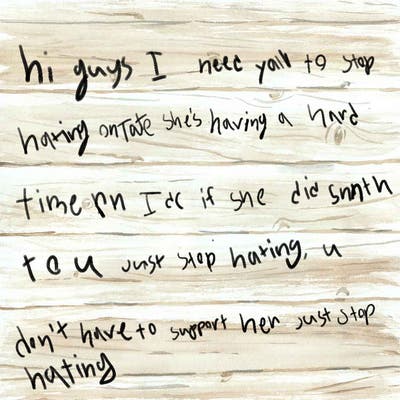 hi guys I need yall to stop
hating on Tate she's having a hard
time rn I dc if she did smth
to u Just stop hating, u
don't have to support her Just stop
hating